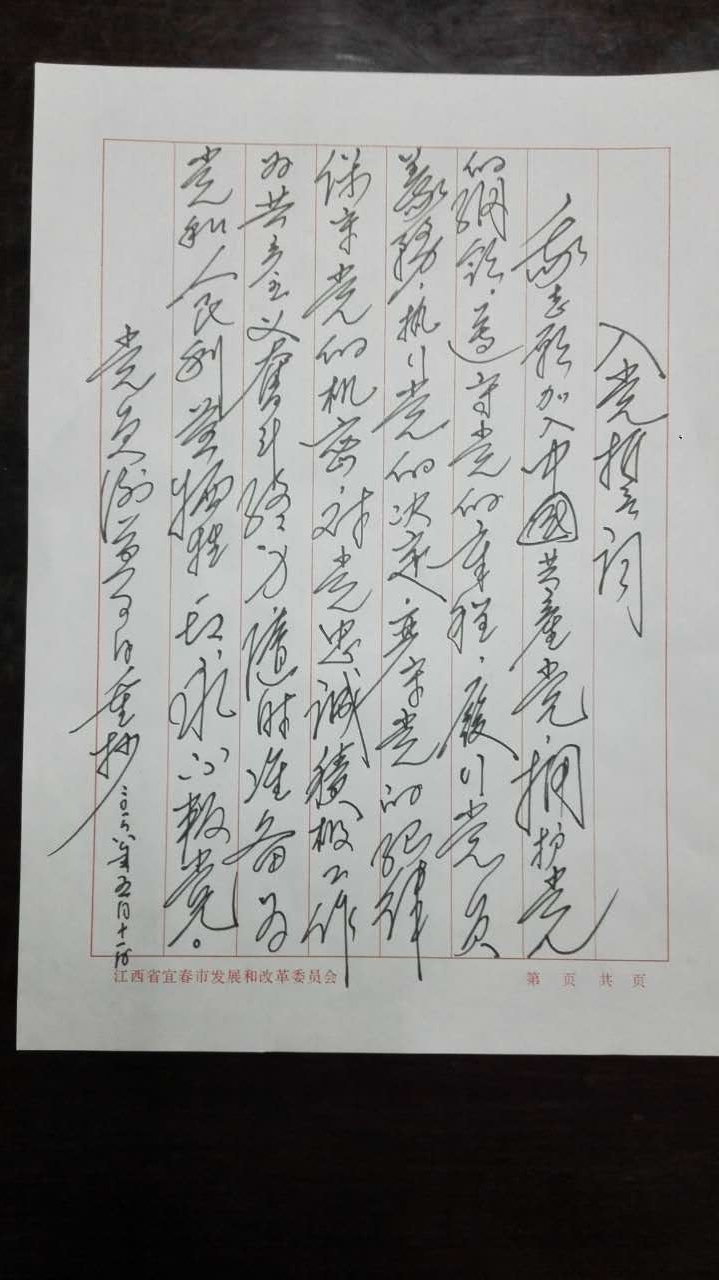 入党誓词
我志愿加入中國共產党，拥护党
的纲领，遵守党的章程，履行党员
義務，执行党的决定，严守党的纪律
保守党的机密，对党忠诚積极工作
为共产主义奮斗终身随时准备为
党和人民利益牺牲一切，永不叛党。
党员谢日重抄
二〇一六年五月十一日
江西省宜春市发展和改革委员会
第 页 共 页